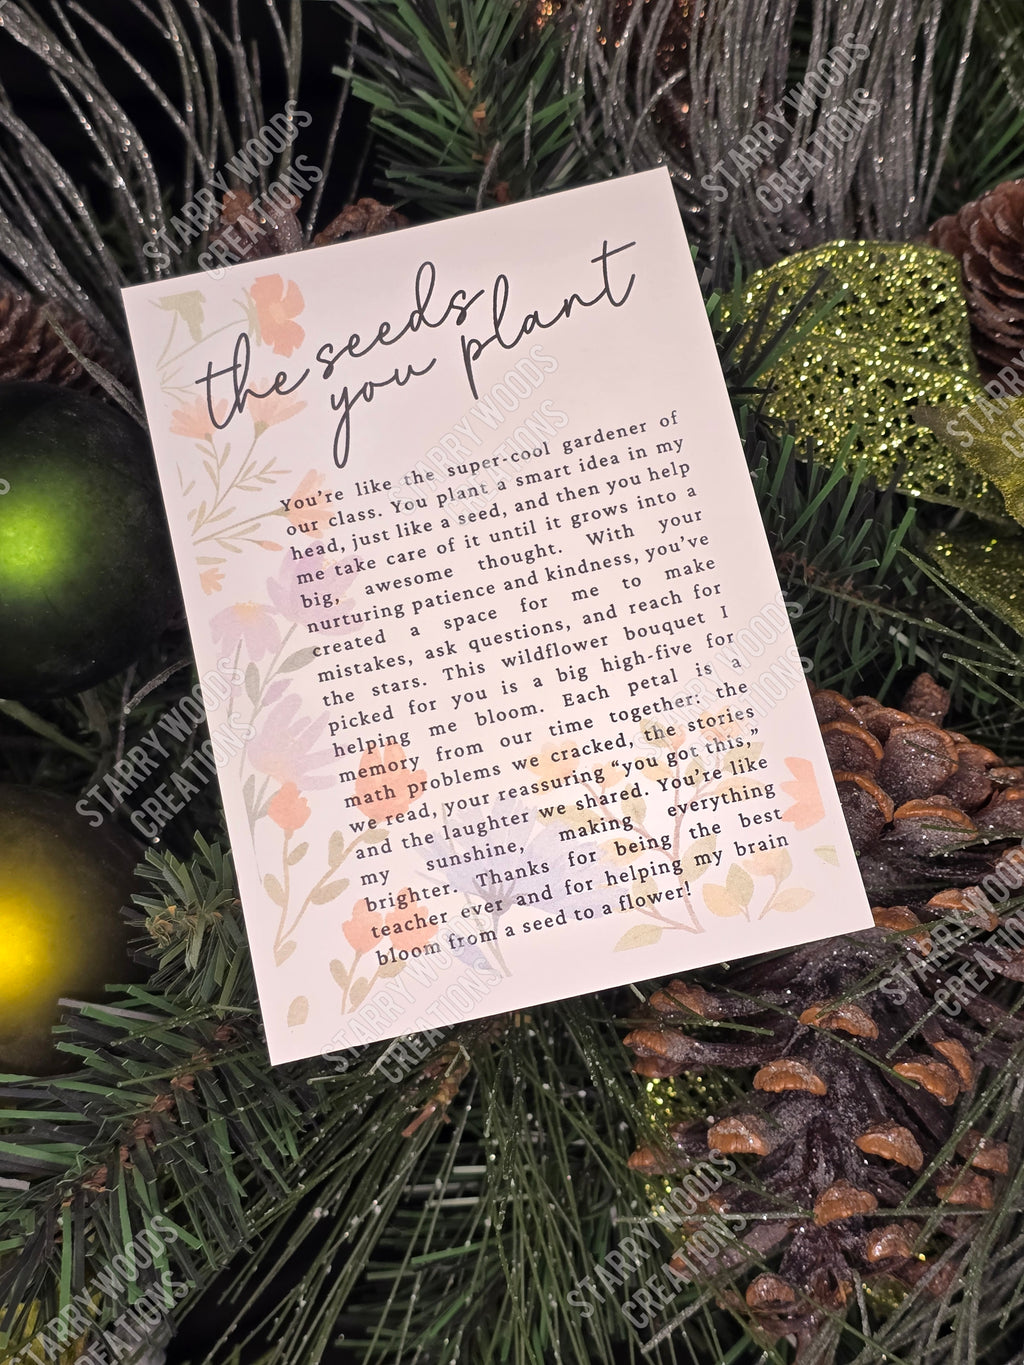 the seeds
you plant
You're like the super-cool gardener of
our class. You plant a smart idea in my
head, just like a seed, and then you help
me take care of it until it grows into a
big, awesome thought. With your
nurturing patience and kindness, you've
created a space for me to make
mistakes, ask questions, and reach for
the stars. This wildflower bouquet I
picked for you is a big high-five for
helping me bloom. Each petal is a
memory from our time together: the
math problems we cracked, the stories
we read, your reassuring “you got this,”
and the laughter we shared. You're like
my sunshine, making everything
brighter. Thanks for being the best
teacher ever and for helping my brain
bloom from a seed to a flower!
STARRY WOODS
CREATIONS
STARRY WOODS
CREATIONS
STARRY WOODS
CREATIONS
STARRY WOODS
CREATIONS
STARRY WOODS
CREATIONS
STARRY WOODS
CREATIONS
STARRY WOODS
CREATIONS
STARRY WOODS
CREATIONS
STARRY WOODS
CREATIONS
STARRY WOODS
CREATIONS